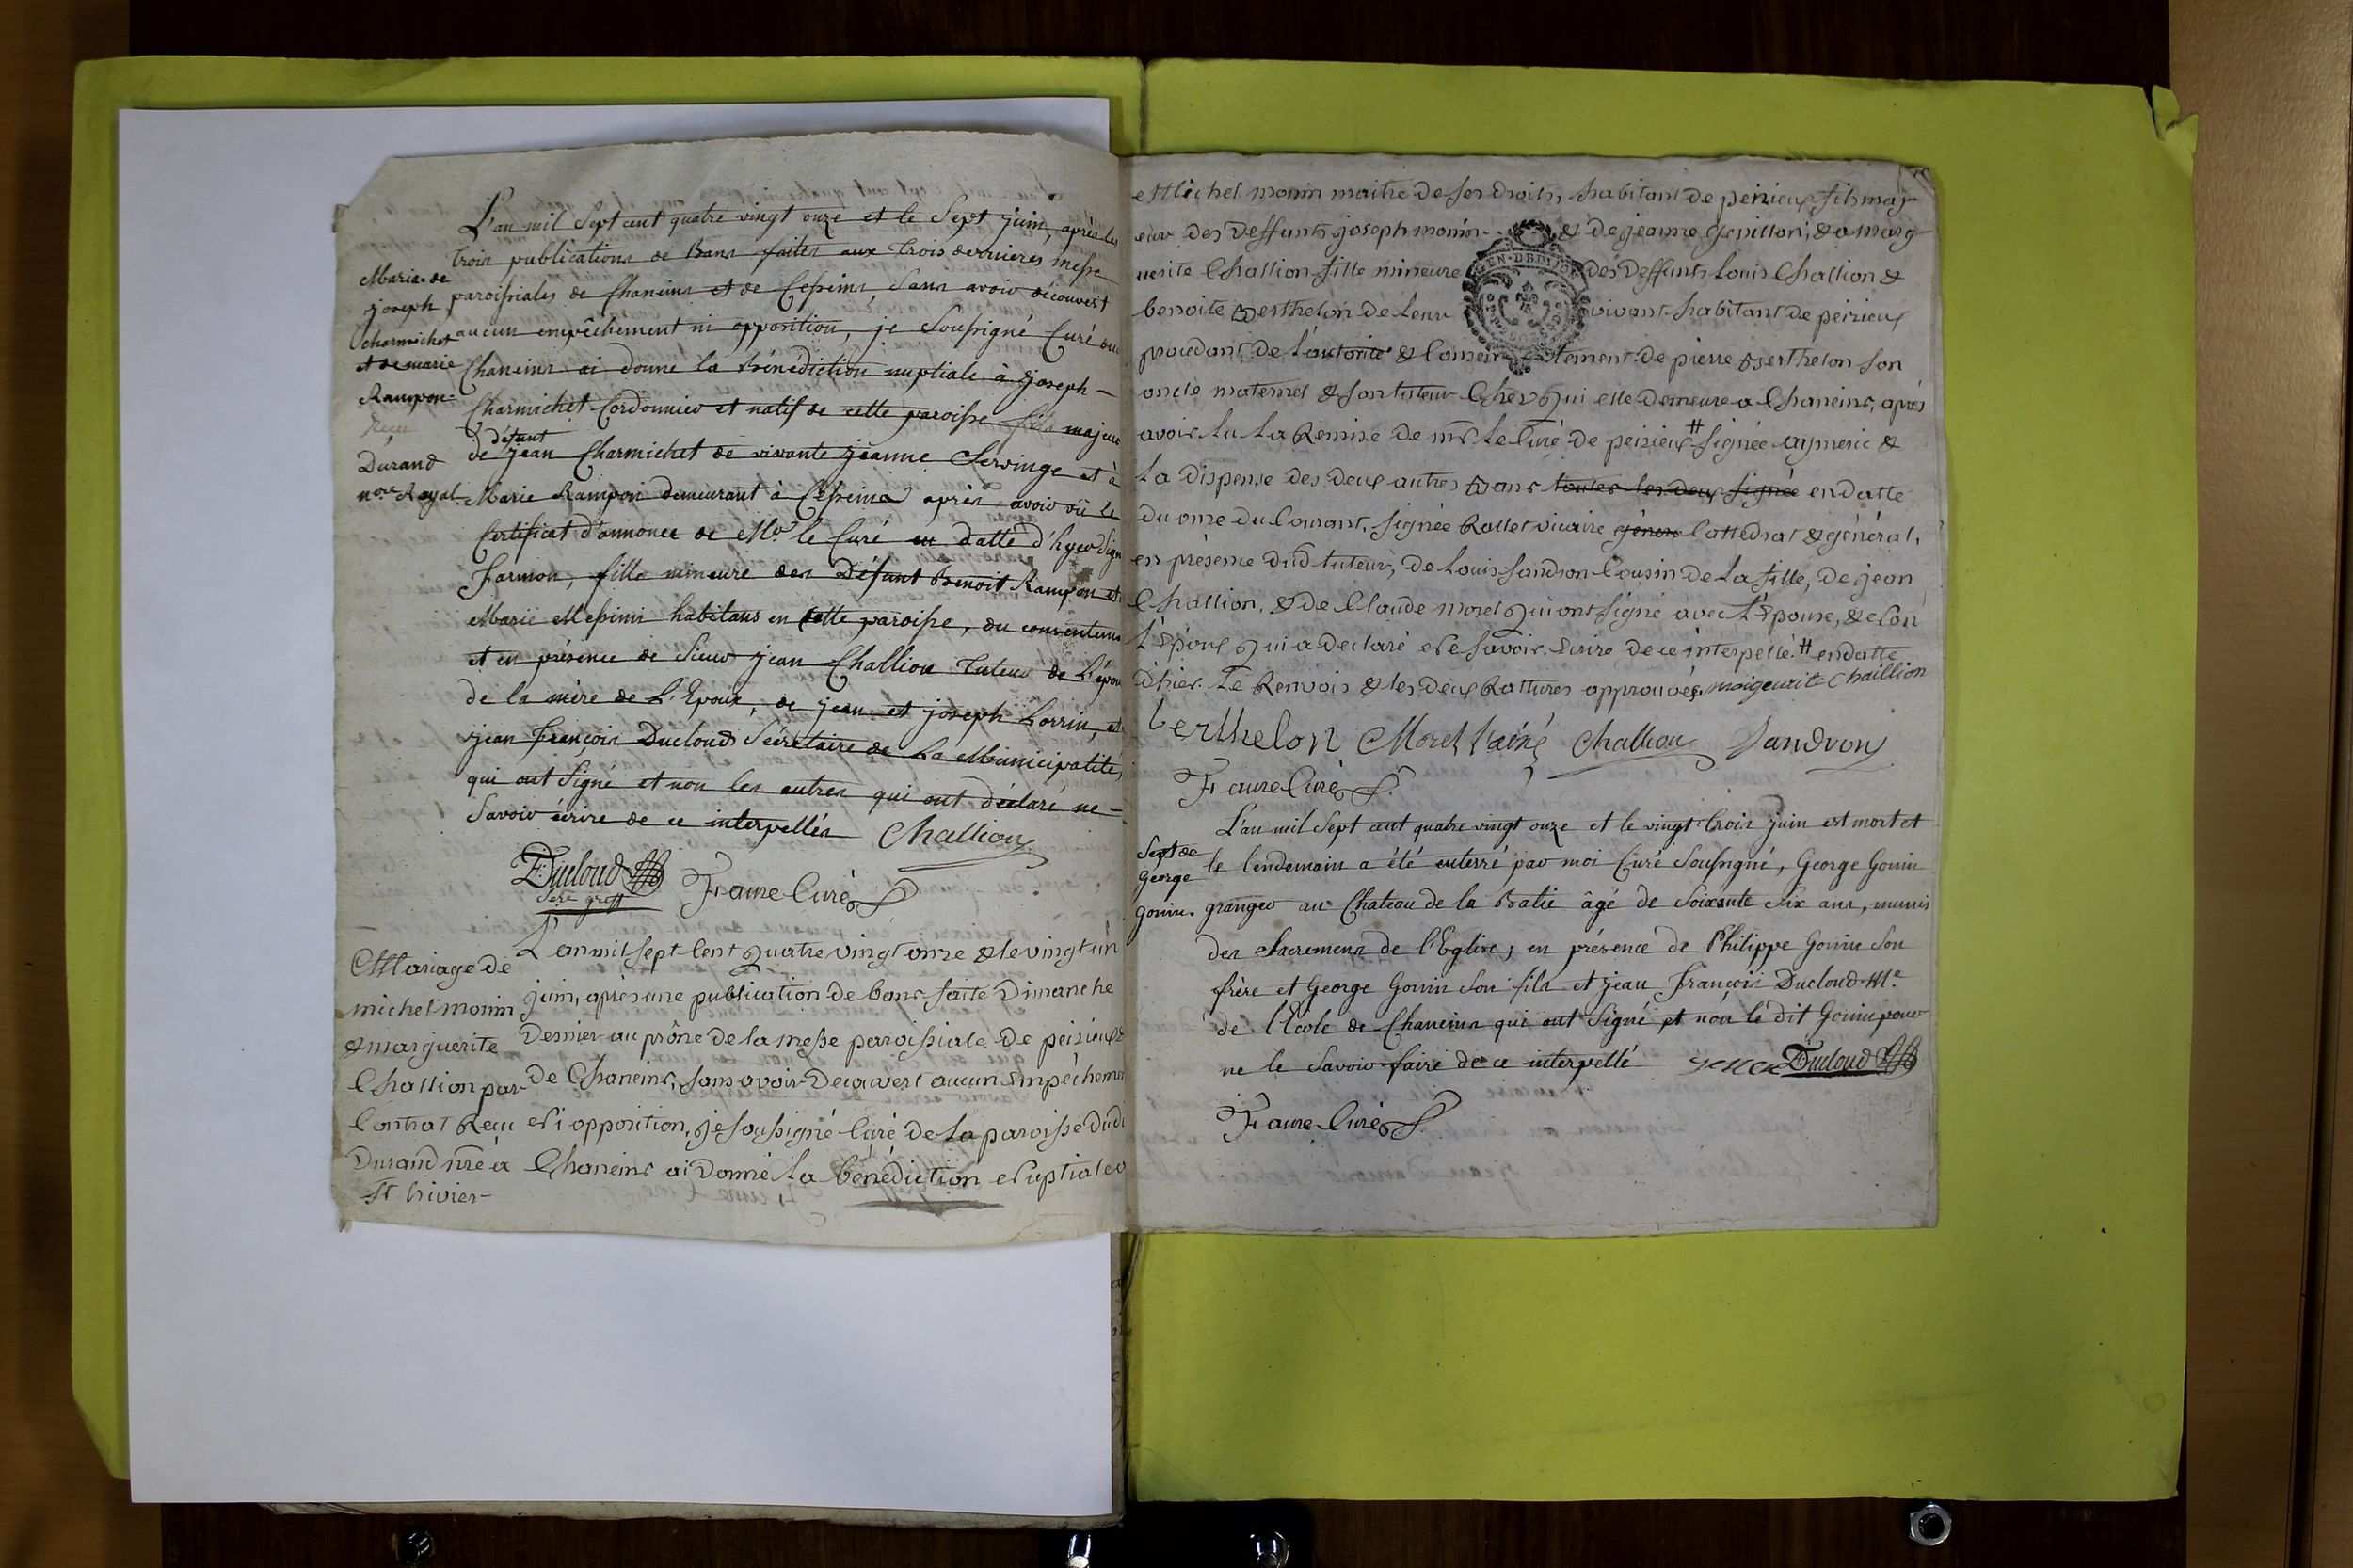 L'an mil Sept cent quatre vingt onze et le Sept juin, après les
trois publications de Bans faites aux trois dernieres messe
Maria. de
joseph
Charmichet
et de marie
Rampon
Reçu
Durand
nore Royal
paroissiales de Chaneins et de Cesseins, Sans avoir découvert
aucun empêchement ni opposition, je Soussigné Curé
Chaneins ai donné la Bénédiction nuptiale à Joseph -
Charmichet Cordonnier et natif de cette paroisse fils majeur
de défunt jean Charmichet de vivante jeanne Servinge et à
Marie Rampon demeurant à Cesseins après avoir vû le
Certificat d'annonce de Mr le Curé en datte d'hyer Signé
Farmon, fille mineure des Défunt Benoit Rampon et
Marie Messimi habitans en cette paroisse, du consenteme
et en présence de Sieur jean Challion Tuteur de L'épou
de la mère de L'Epoux, de jean et joseph Lorrin, et
jean François Ducloud Sécrétaire de La Municipalité,
qui ont Signé et non les autres qui ont déclaré ne -
Savoir écrire de ce interpellés Challion
Ducloud
Sére greff
Faure Curé
Mariage de
michel monin
& marguerite
Challion par
Contrat Reçu
Durand nre a
St trivier -
L'an mil sept Cent Quatre vingt onze & le vingt un
juin, après une publication de bans faite Dimanche
Dernier au prône de la messe paroissiale De peizieux &
de Chaneins, sans avoir Decouvert aucun Empêchemen
Ni opposition, je soussigné Curé de La paroisse dud
Chaneins ai Donné La bénédiction Nuptiale a
Michel monin maitre de ses droits, habitant de peizieux fils maj-
eur des Deffunts joseph monin & de jeanne Genillon; & a marg-
uerite Challion fille mineure des Deffunts Louis Challion &
GEN. DE DIJON
benoite Berthelon de Leur vivant habitant de peizieux
procedant de L'autorité & Consentement de pierre Berthelon son
oncle maternel & son tuteur Chez Qui elle Demeure a Chaneins, après
avoir lu La Remise de mr Le Curé de peizieux # signée aymeric &
La Dispense des Deux autres Bans toutes les deux signée en datte
Du onze du Courant, signée Rollet vicaire génera Cathédral & général,
en présence dud tuteur, de Louis sandron Cousin de La fille, de jean
Challion, & de Claude morel Qui ont signé avec L'Epouse, & Non
L'Epoux Qui a declaré Ne savoir Ecrire de ce interpellé. # en datte
D'hier. Le Renvois & les deux Rattures approuvés. maigeurite Chaillion
berthelon Morel L'ainé Challion Sandron
Faure Curé
L'an mil Sept cent quatre vingt onze et le vingt trois juin est mort et
Sept de
George
Gonin.
le lendemain a été enterré par moi Curé Soussigné, George Gonin
granger au Chateau de la Batie âgé de Soixante Six ans, munis
des Sacremens de l'Eglise; en présence de Philippe Gonin Son
frère et George Gonin Son fils et jean François Ducloud Me
de l'Ecole de Chaneins qui ont Signé et non le dit Gonin pour
ne le Savoir faire de ce interpellé Ducloud
Faure Curé